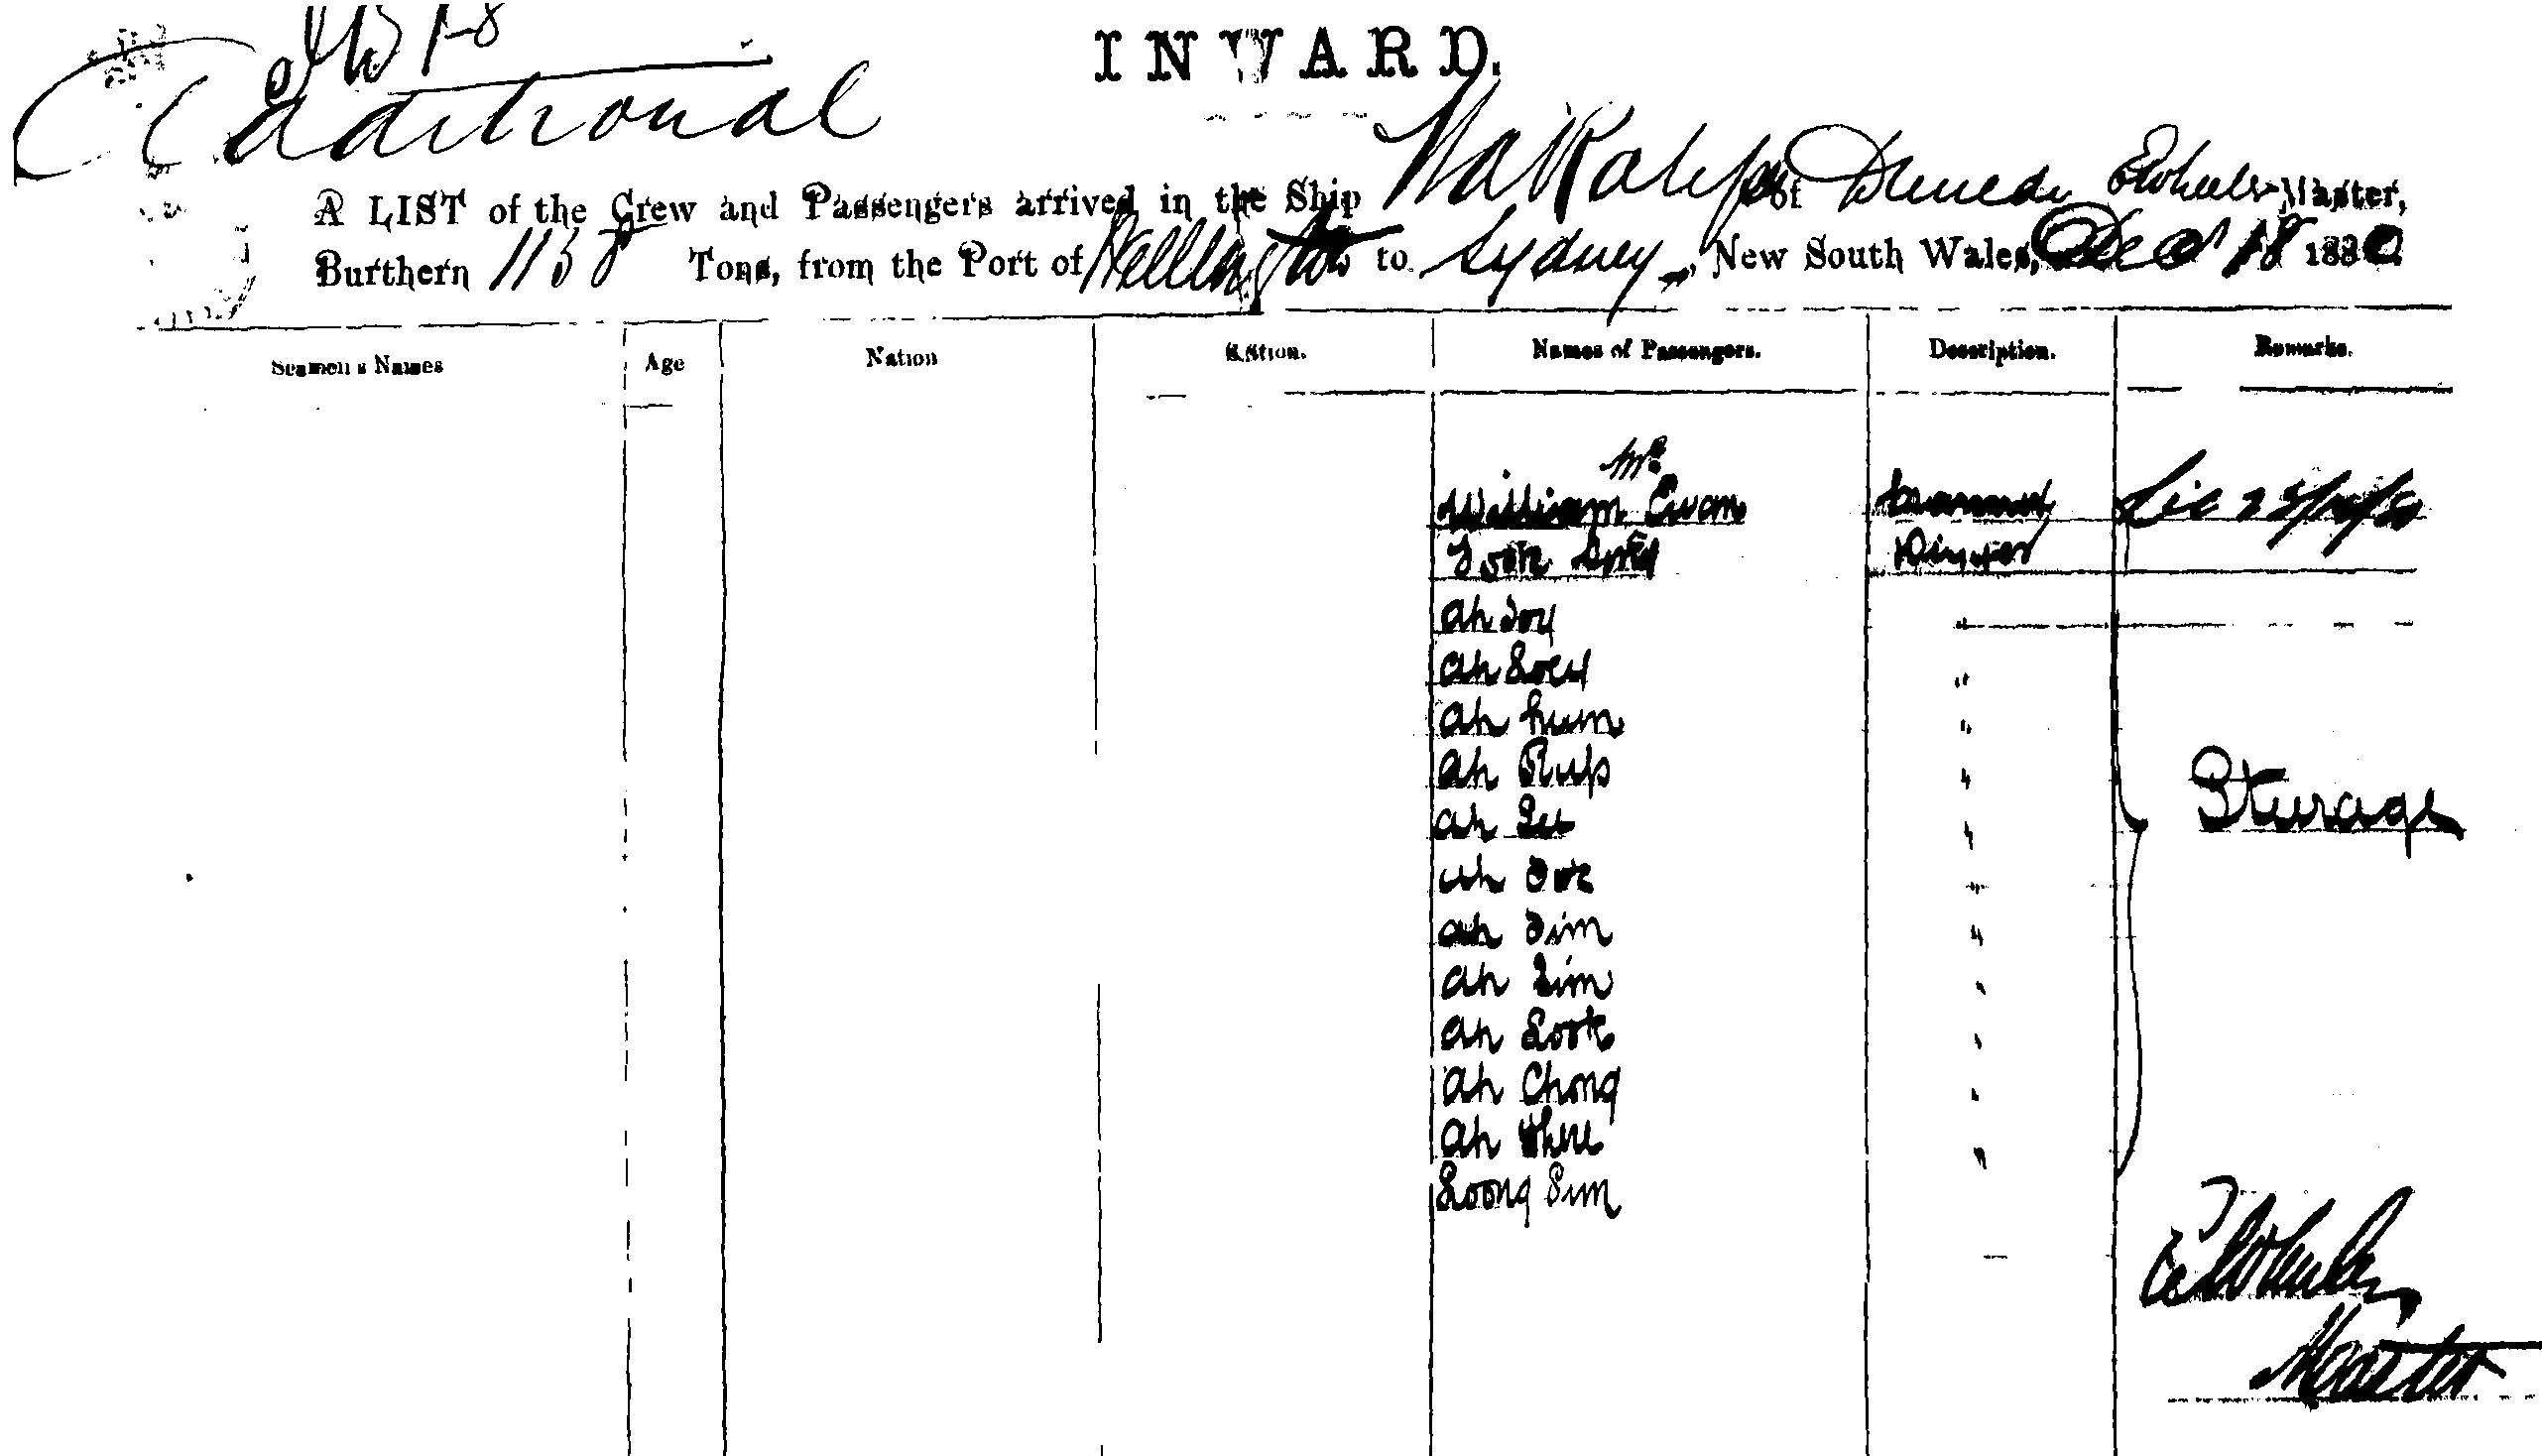 Additional
INWARD.
A LIST of the Crew and Passengers arrived in the Ship Wakatipu of Dunedin E Wheeler Master,
Burthern 1158 Tons, from the Port of Wellington to Sydney, New South Wales, Dec 18 1880
Seamen's Names Age Nation Station. Names of Passengers. Description. Remarks.
Mr
William Ewan
Ah Soy "
Ah Loey "
Ah hum "
Ah Kup "
Ah Lee "
Ah "
Ah Sim "
Ah Lim "
Ah Look "
Ah Chong "
Ah "
Loong Sum
Sturage
E Wheeler
Master